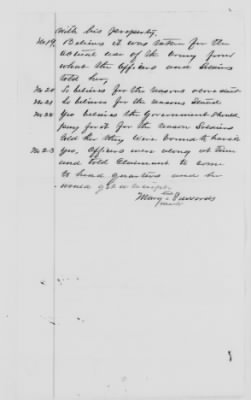 with his property,
No 19, Believes it was taken for the
actual use of the Army from
what the Officers and Soldiers
told her,
No 20 So believes for the reasons above stated
No 21 So believes for the reasons Stated
No 22 Yes, believes the Government should
pay for it for the reason Soldiers
told her they were bound to have it
No 23 Yes, Officers were along at time
and told Claimant to come
to head quarters and he
would get a receipt
Mary Edwards
her
mark